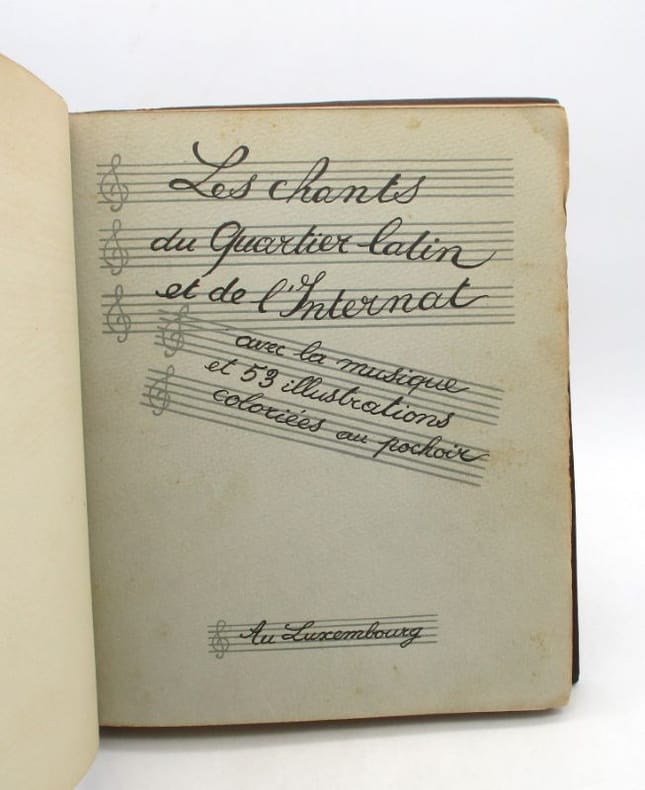 Les chants
du Quartier latin
et de l'Internat
avec la musique
et 53 illustrations
coloriées au pochoir
Au Luxembourg